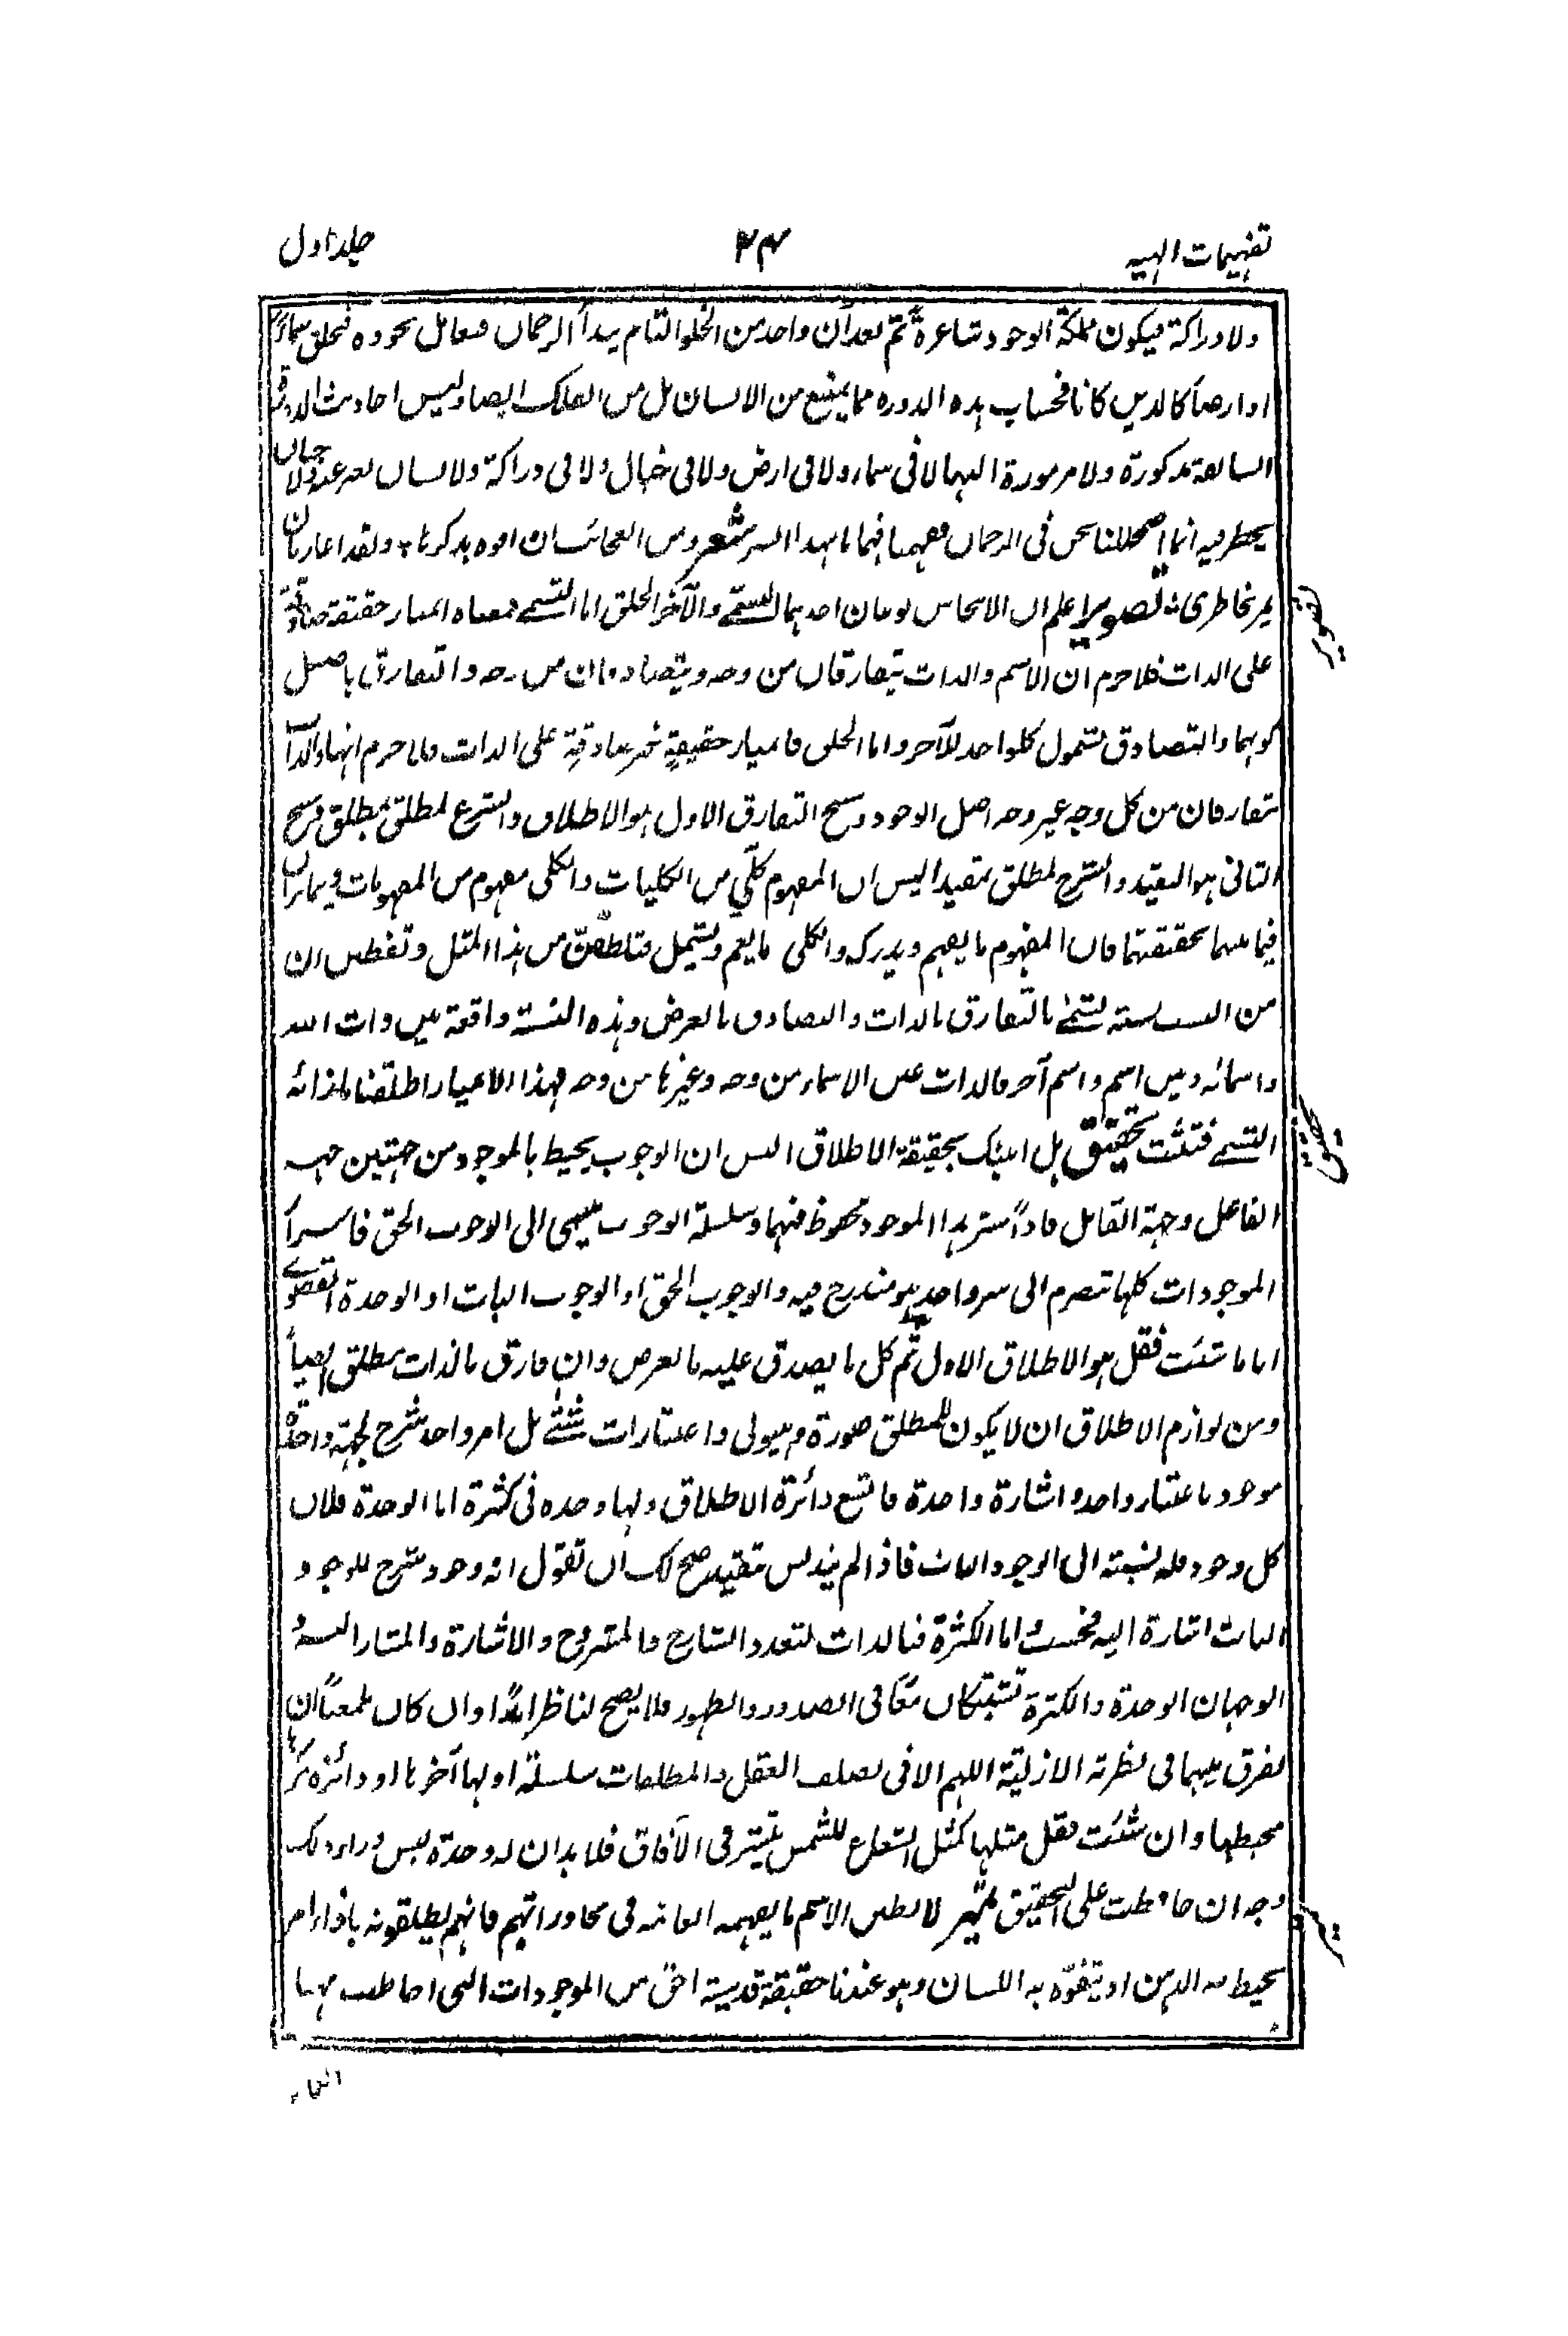 تفہیمات الہیہ
۳۴
جلد اول
ولا دراكة فيكون مملكة الوجود شاعرة ثم بعد آن واحد من الخلو التام يبدأ الرحمان فعامل بجوده فخلق سماءً
او ارضاً كالذين كانا فحساب هذه الدورة مما يمتنع من الانسان بل من الفلك ايضا وليس احاديث الدورة
السابقة مذكورة ولا مرموزة اليها لا فى سماء ولا فى ارض ولا فى خيال ولا فى دراكة ولا لسان ولا جنان
يخطر فيه انما اضمحللنا نحن فى الرحمان ففهمنا بهذا السر
يمر بخاطرى تصوير اعلم ان الاجناس نوعان احدهما التسمى والآخر الخلق اما التسمى فمعناه امتياز حقيقة صادقة
على الذات فلا جرم ان الاسم والذات يتفارقان من وجه ويتصادقان من وجه والتفارق باصل
كونهما والتصادق لشمول كل واحد للآخر واما الخلق فامتياز حقيقةٍ غير صادقة على الذات فلا جرم انها والذات
متفارقان من كل وجه غير وجه اصل الوجود وسنخ التفارق الاول هو الاطلاق والشرح لمطلق بمطلق وسنخ
الثانى هو التقيد والشرح لمطلق بمقيد اليس ان المفهوم كلى من الكليات والكلى مفهوم من المفهومات ويمتازان
فيما بينهما بحقيقتهما فان المفهوم ما يفهم ويدرك والكلى ما يعم ويشمل فتلطفن من هذا المثل وتفطن ان
من النسب نسبة تسمى بالتفارق بالذات والتصادق بالعرض وهذه النسبة واقعة بين ذات الله
واسمائه وبين اسم واسم آخر فالذات عين الاسماء من وجه وغيرها من وجه فهذا الامتياز اطلقنا بازائه
التسمى فتثبت تحقيق هل اتيتك بحقيقة الاطلاق اليس ان الوجوب يحيط بالموجود من جهتين جهة
الفاعل وجهة القابل فاذاً سر هذا الموجود محفوظ فيهما وسلسلة الوجوب تنتهى الى الوجوب الحق فاسرار
الموجودات كلها تنصرم الى سر واحد هو مندرج فيه والوجوب الحق او الوجوب البات او الوحدة القصوى
اياما شئت فقل هو الاطلاق الاول ثم كل ما يصدق عليه بالعرض وان فارق بالذات مطلق ايضاً
ومن لوازم الاطلاق ان لا يكون للمطلق صورة وهيولى واعتبارات شتى بل امر واحد شرح لجهة واحدة
موجود باعتبار واحد واشارة واحدة فاتسع دائرة الاطلاق ولها وحدة فى كثرة اما الوحدة فلان
كل وجود فله نسبته الى الوجود البات فاذا لم يندنس بتقييد صح لك ان تقول انه وجود شرح للوجود
البات اشارة اليه فحسب واما الكثرة فبالذات لتعدد الشارح والمشروح والاشارة والمشار اليه و
الوجهان الوحدة والكثرة تشتبكان معاً فى الصدور والظهور فلا يصح لناظر ابداً وان كان ملمعاً ان
يفرق بينهما فى نظرته الازلية اللهم الا فى تصلف العقل والمطلقات سلسلة اولها آخرها او دائرة مركزها
محيطها وان شئت فقل مثلها كمثل الشعاع للشمس ينتشر فى الآفاق فلا بد ان له وحدة ليس وراء ذلك
وجدان حافظت على التحقيق لا تظنن الاسم ما يفهمه العامة فى محاوراتهم فانهم يطلقونه بازاء امر
يحيط به الذهن او يتفوّه به اللسان وهو عندنا حقيقة قدسية احق من الموجودات التى احاطت بها
تصویر
تحقیق